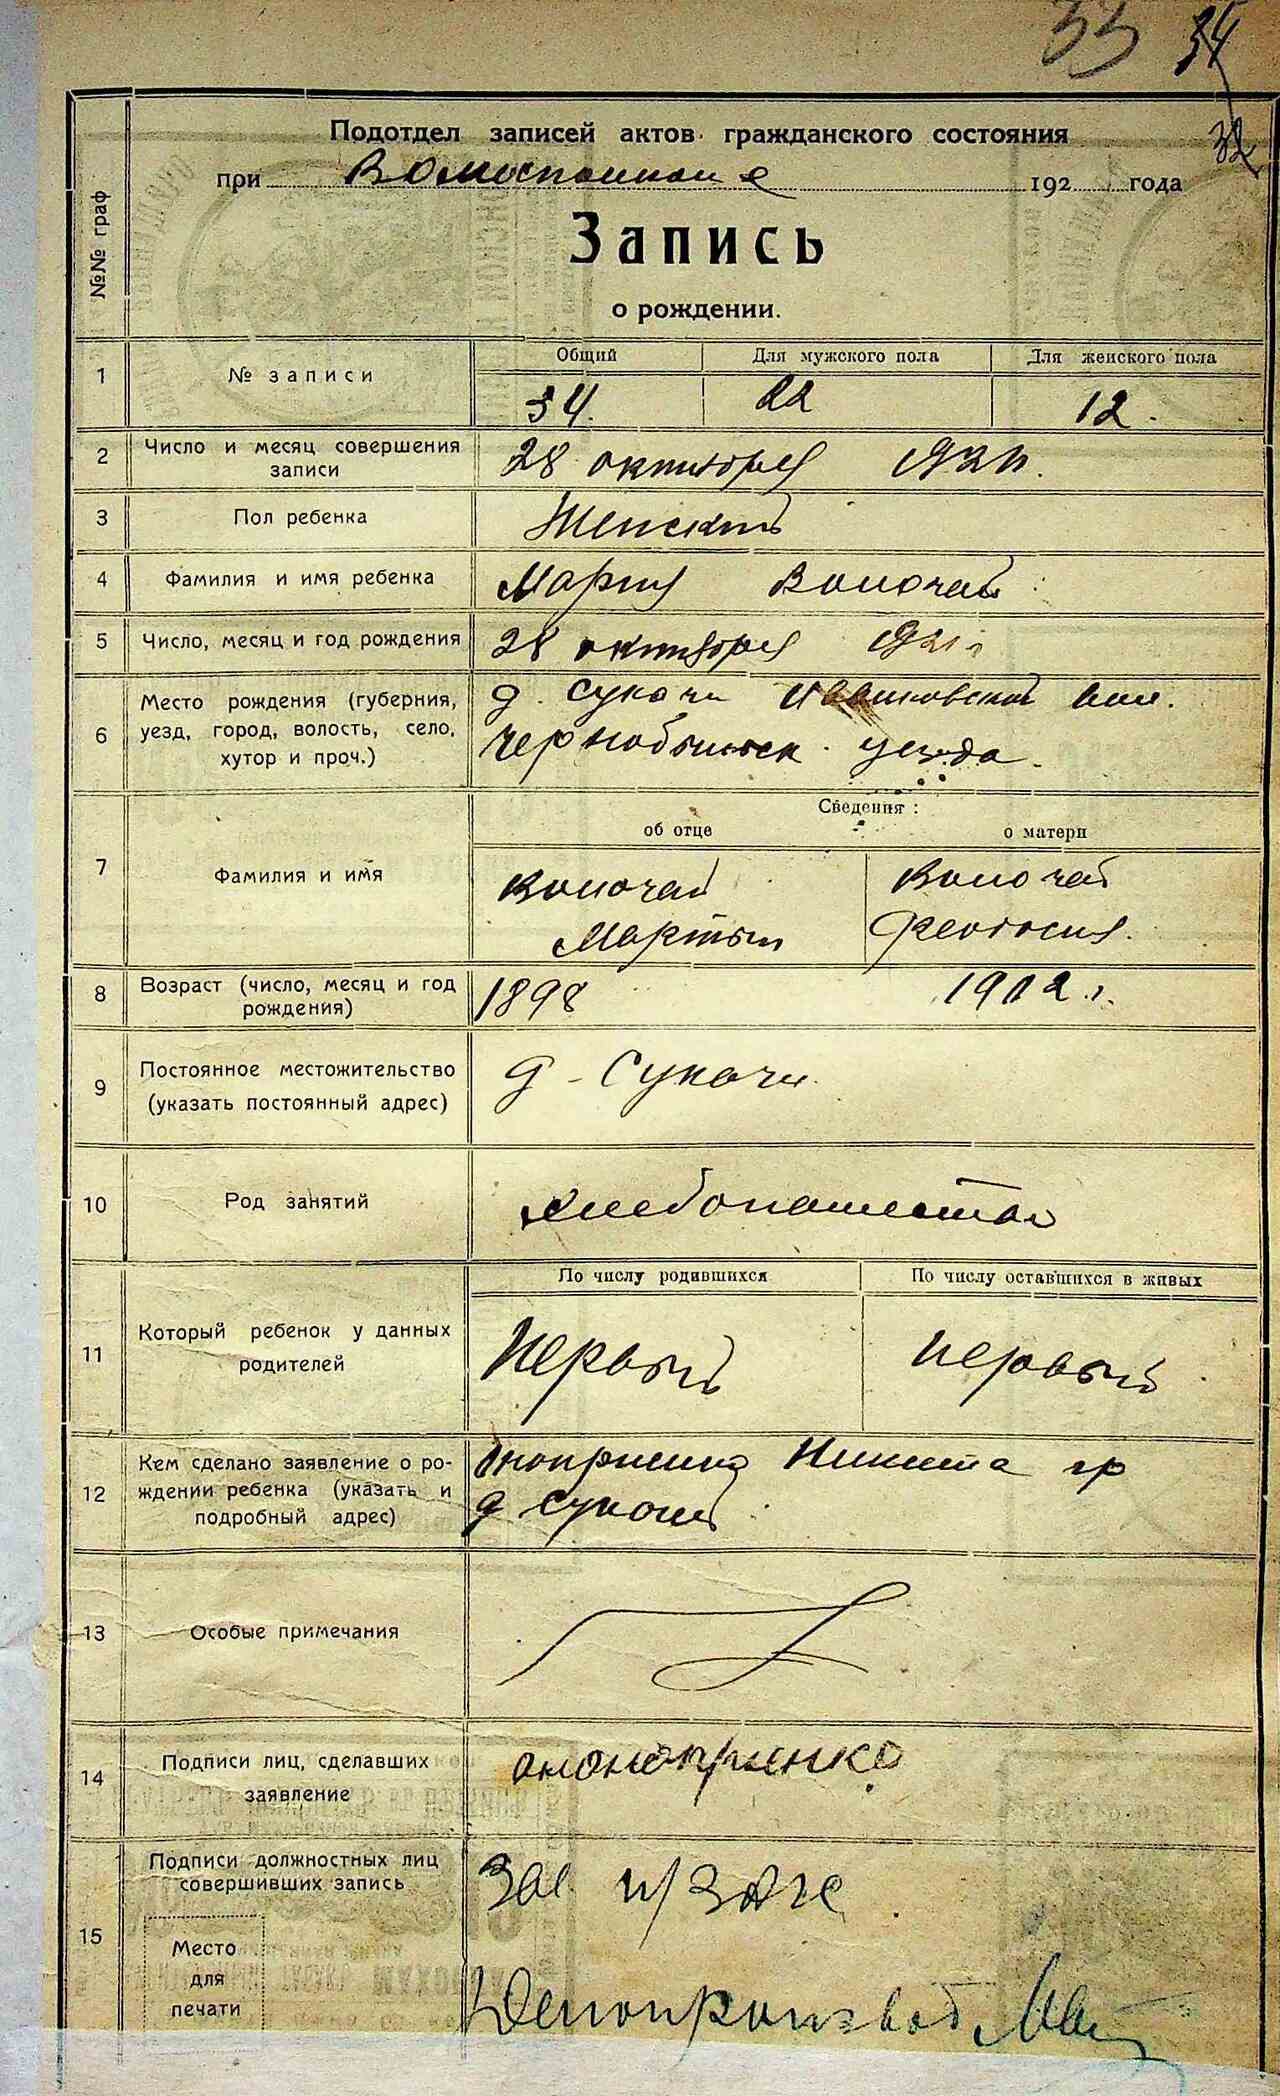 33 34
32
Подотдел записей актов гражданского состояния
при Волисполкоме 192 года
№№ граф
Запись
о рождении.
1 № записи Общий Для мужского пола Для женского пола
34. 22 12.
2 Число и месяц совершения записи 28 октября 1921.
3 Пол ребенка Женский
4 Фамилия и имя ребенка Мария Волочай
5 Число, месяц и год рождения 28 октября 1921 г
6 Место рождения (губерния, уезд, город, волость, село, хутор и проч.) д. Сукачи Иванковской вол.
Чернобыльск. уезда.
Сведения:
об отце о матери
7 Фамилия и имя Волочай Волочай
Мартын Феодосия.
8 Возраст (число, месяц и год рождения) 1898 1902 г.
9 Постоянное местожительство (указать постоянный адрес) д - Сукачи.
10 Род занятий хлебопашество
По числу родившихся По числу оставшихся в живых
11 Который ребенок у данных родителей Первый первый
12 Кем сделано заявление о рождении ребенка (указать и подробный адрес) Никита гр
д Сукачи
13 Особые примечания
14 Подписи лиц, сделавших заявление
15 Подписи должностных лиц совершивших запись Зав. п/Загс
Место
для
печати
Делопроизвод